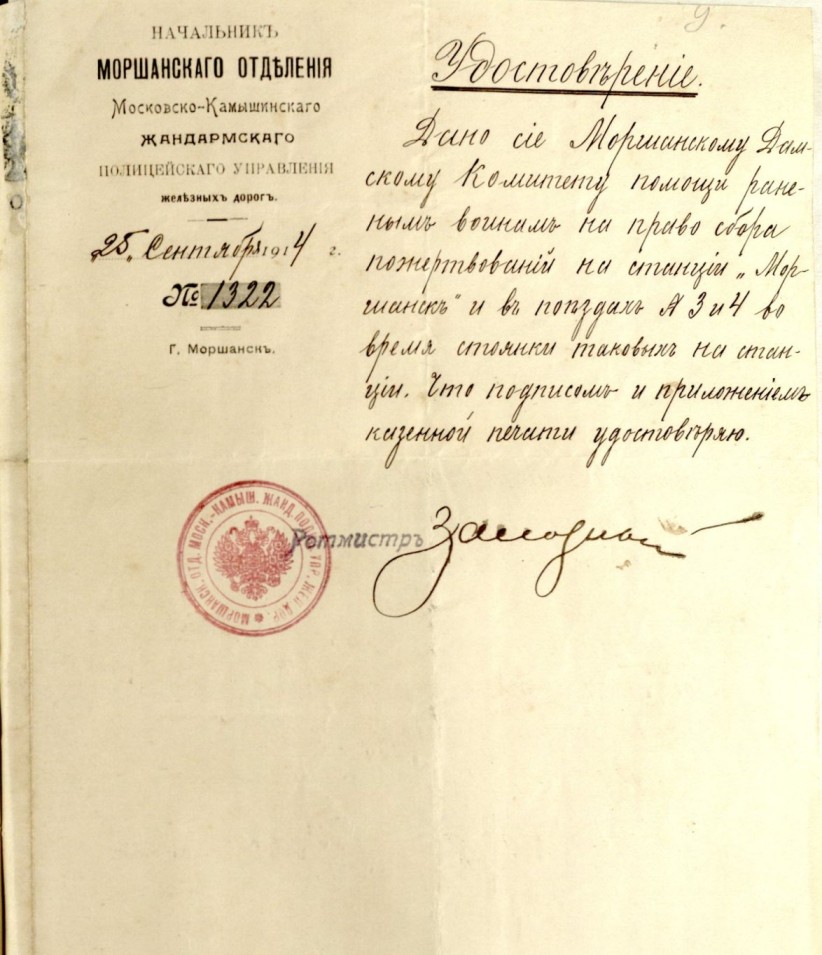 9.
НАЧАЛЬНИКЪ
МОРШАНСКАГО ОТДѢЛЕНІЯ
Московско-Камышинскаго
ЖАНДАРМСКАГО
ПОЛИЦЕЙСКАГО УПРАВЛЕНІЯ
желѣзныхъ дорогъ.
„25„ Сентября 1914 г.
№ 1322
Г. Моршанскъ.
Удостовѣреніе.
Дано сіе Моршанскому Дам-
скому Комитету помощи ране-
нымъ воинамъ на право сбора
пожертвованій на станціи „Мор-
шанскъ" и въ поѣздахъ № 3 и 4 во
время стоянки таковыхъ на стан-
ціи. Что подписомъ и приложеніемъ
казенной печати удостовѣряю.
Ротмистръ
МОРШАНСК. ОТД. МОСК.-КАМЫШ. ЖАНД. ПОЛ. УПР. ЖЕЛ. ДОР.